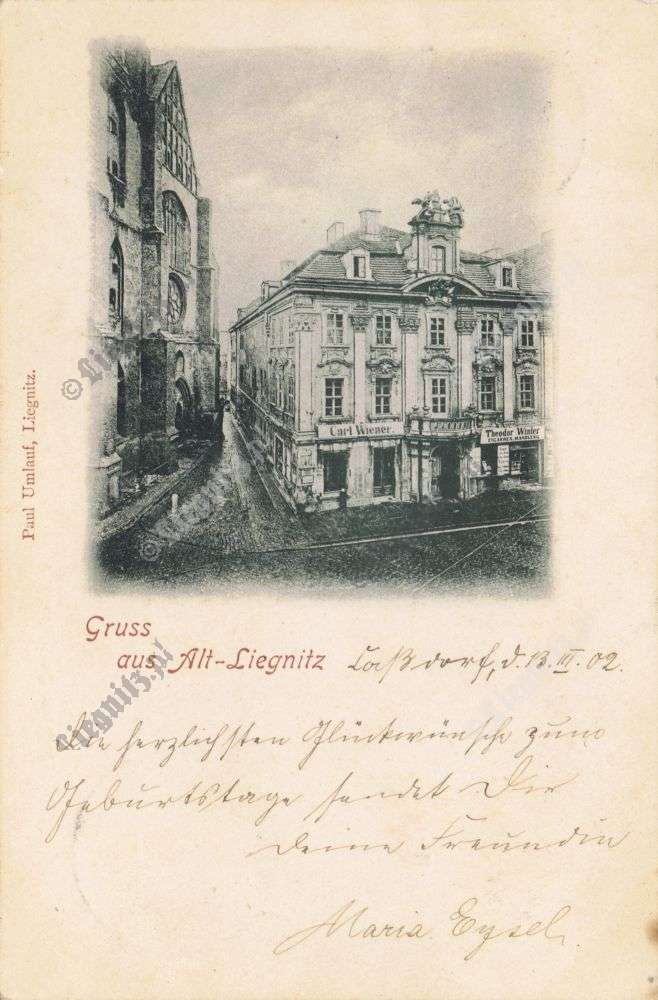 Carl Wiener.
Theodor Winter
CIGARREN-HANDLUNG
Paul Umlauf, Liegnitz.
Gruss
aus Alt-Liegnitz
Laßdorf, d. 13. III. 02.
Die herzlichsten Glückwünsche zum
Geburtstage sendet Dir
Deine Freundin
Maria Eysel.
© Liegnitz.pl